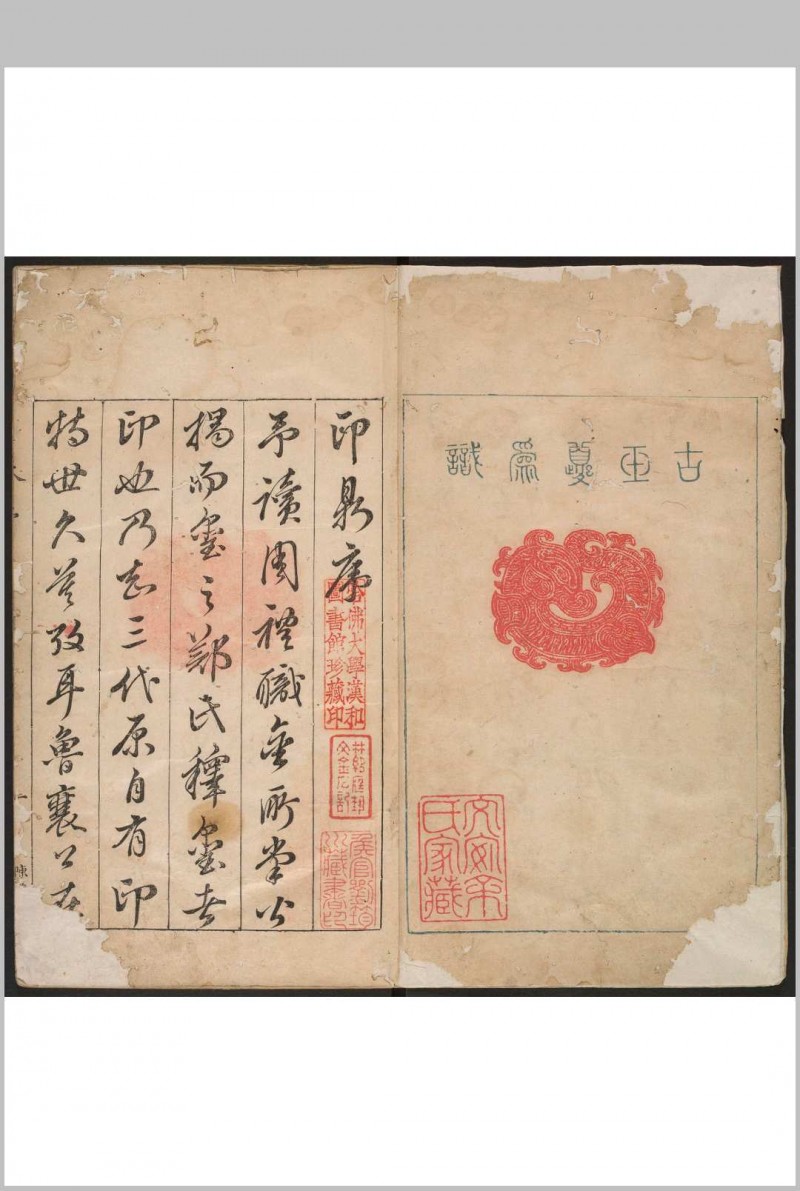 古玉夔爲識
文安帝氏家藏
印鼎序
予讀周禮職金所掌必
楬而璽之鄭氏釋璽者
印也乃知三代原自有印
特世久莫攷耳魯襄公在
哈佛大學漢和圖書館珍藏印
藏書印
陳